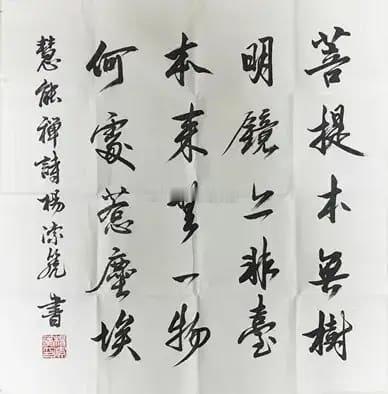 菩提本無樹
明鏡亦非臺
本來無一物
何處惹塵埃
慧能禪詩楊書